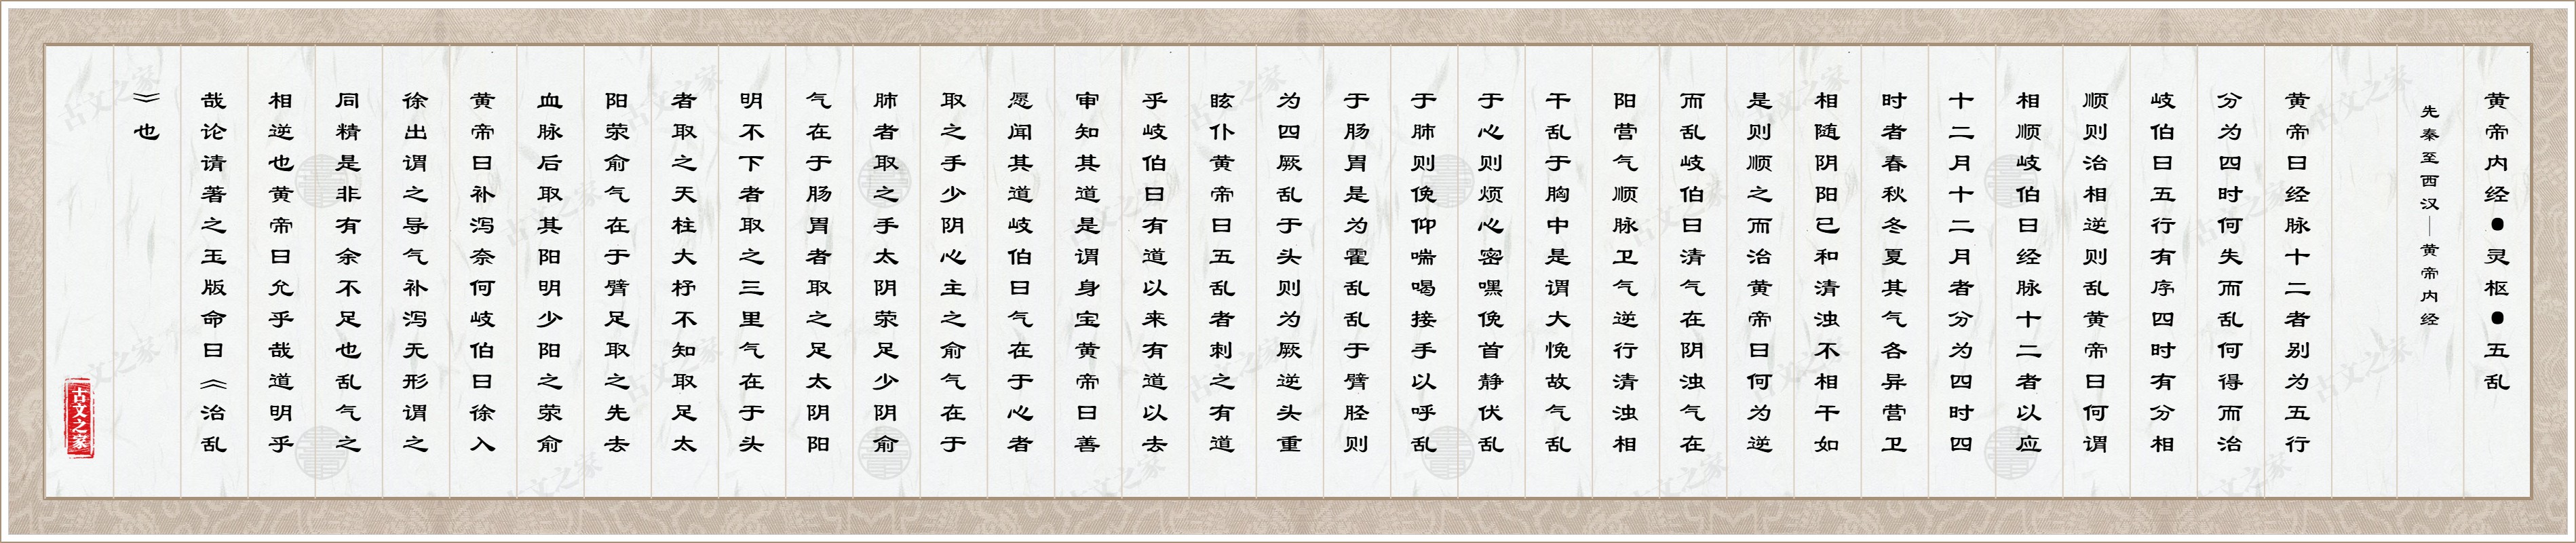 黄帝内经●灵枢●五乱
先秦至西汉—黄帝内经
黄帝曰经脉十二者别为五行
分为四时何失而乱何得而治
岐伯曰五行有序四时有分相
顺则治相逆则乱黄帝曰何谓
相顺岐伯曰经脉十二者以应
十二月十二月者分为四时四
时者春秋冬夏其气各异营卫
相随阴阳已和清浊不相干如
是则顺之而治黄帝曰何为逆
而乱岐伯曰清气在阴浊气在
阳营气顺脉卫气逆行清浊相
干乱于胸中是谓大悗故气乱
于心则烦心密嘿俛首静伏乱
于肺则俛仰喘喝接手以呼乱
于肠胃是为霍乱乱于臂胫则
为四厥乱于头则为厥逆头重
眩仆黄帝曰五乱者刺之有道
乎岐伯曰有道以来有道以去
审知其道是谓身宝黄帝曰善
愿闻其道岐伯曰气在于心者
取之手少阴心主之俞气在于
肺者取之手太阴荥足少阴俞
气在于肠胃者取之足太阴阳
明不下者取之三里气在于头
者取之天柱大杼不知取足太
阳荥俞气在于臂足取之先去
血脉后取其阳明少阳之荥俞
黄帝曰补泻奈何岐伯曰徐入
徐出谓之导气补泻无形谓之
同精是非有余不足也乱气之
相逆也黄帝曰允乎哉道明乎
哉论请著之玉版命曰《治乱
》也
古文之家